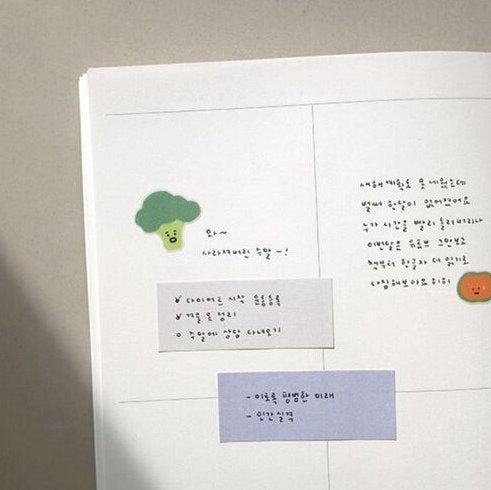 와~
사라져버린 주말~!
다이어트 시작 운동등록
겨울옷 정리
주말에 상담 다녀오기
- 이토록 평범한 미래
- 인간실격
새해계획도 못 세웠는데
벌써 한달이 없어졌어요
누가 시간을 빨리 돌려버리나
이번달은 유튜브 그만보고
책부터 한글자 더 읽기로
다짐해보아요 히히